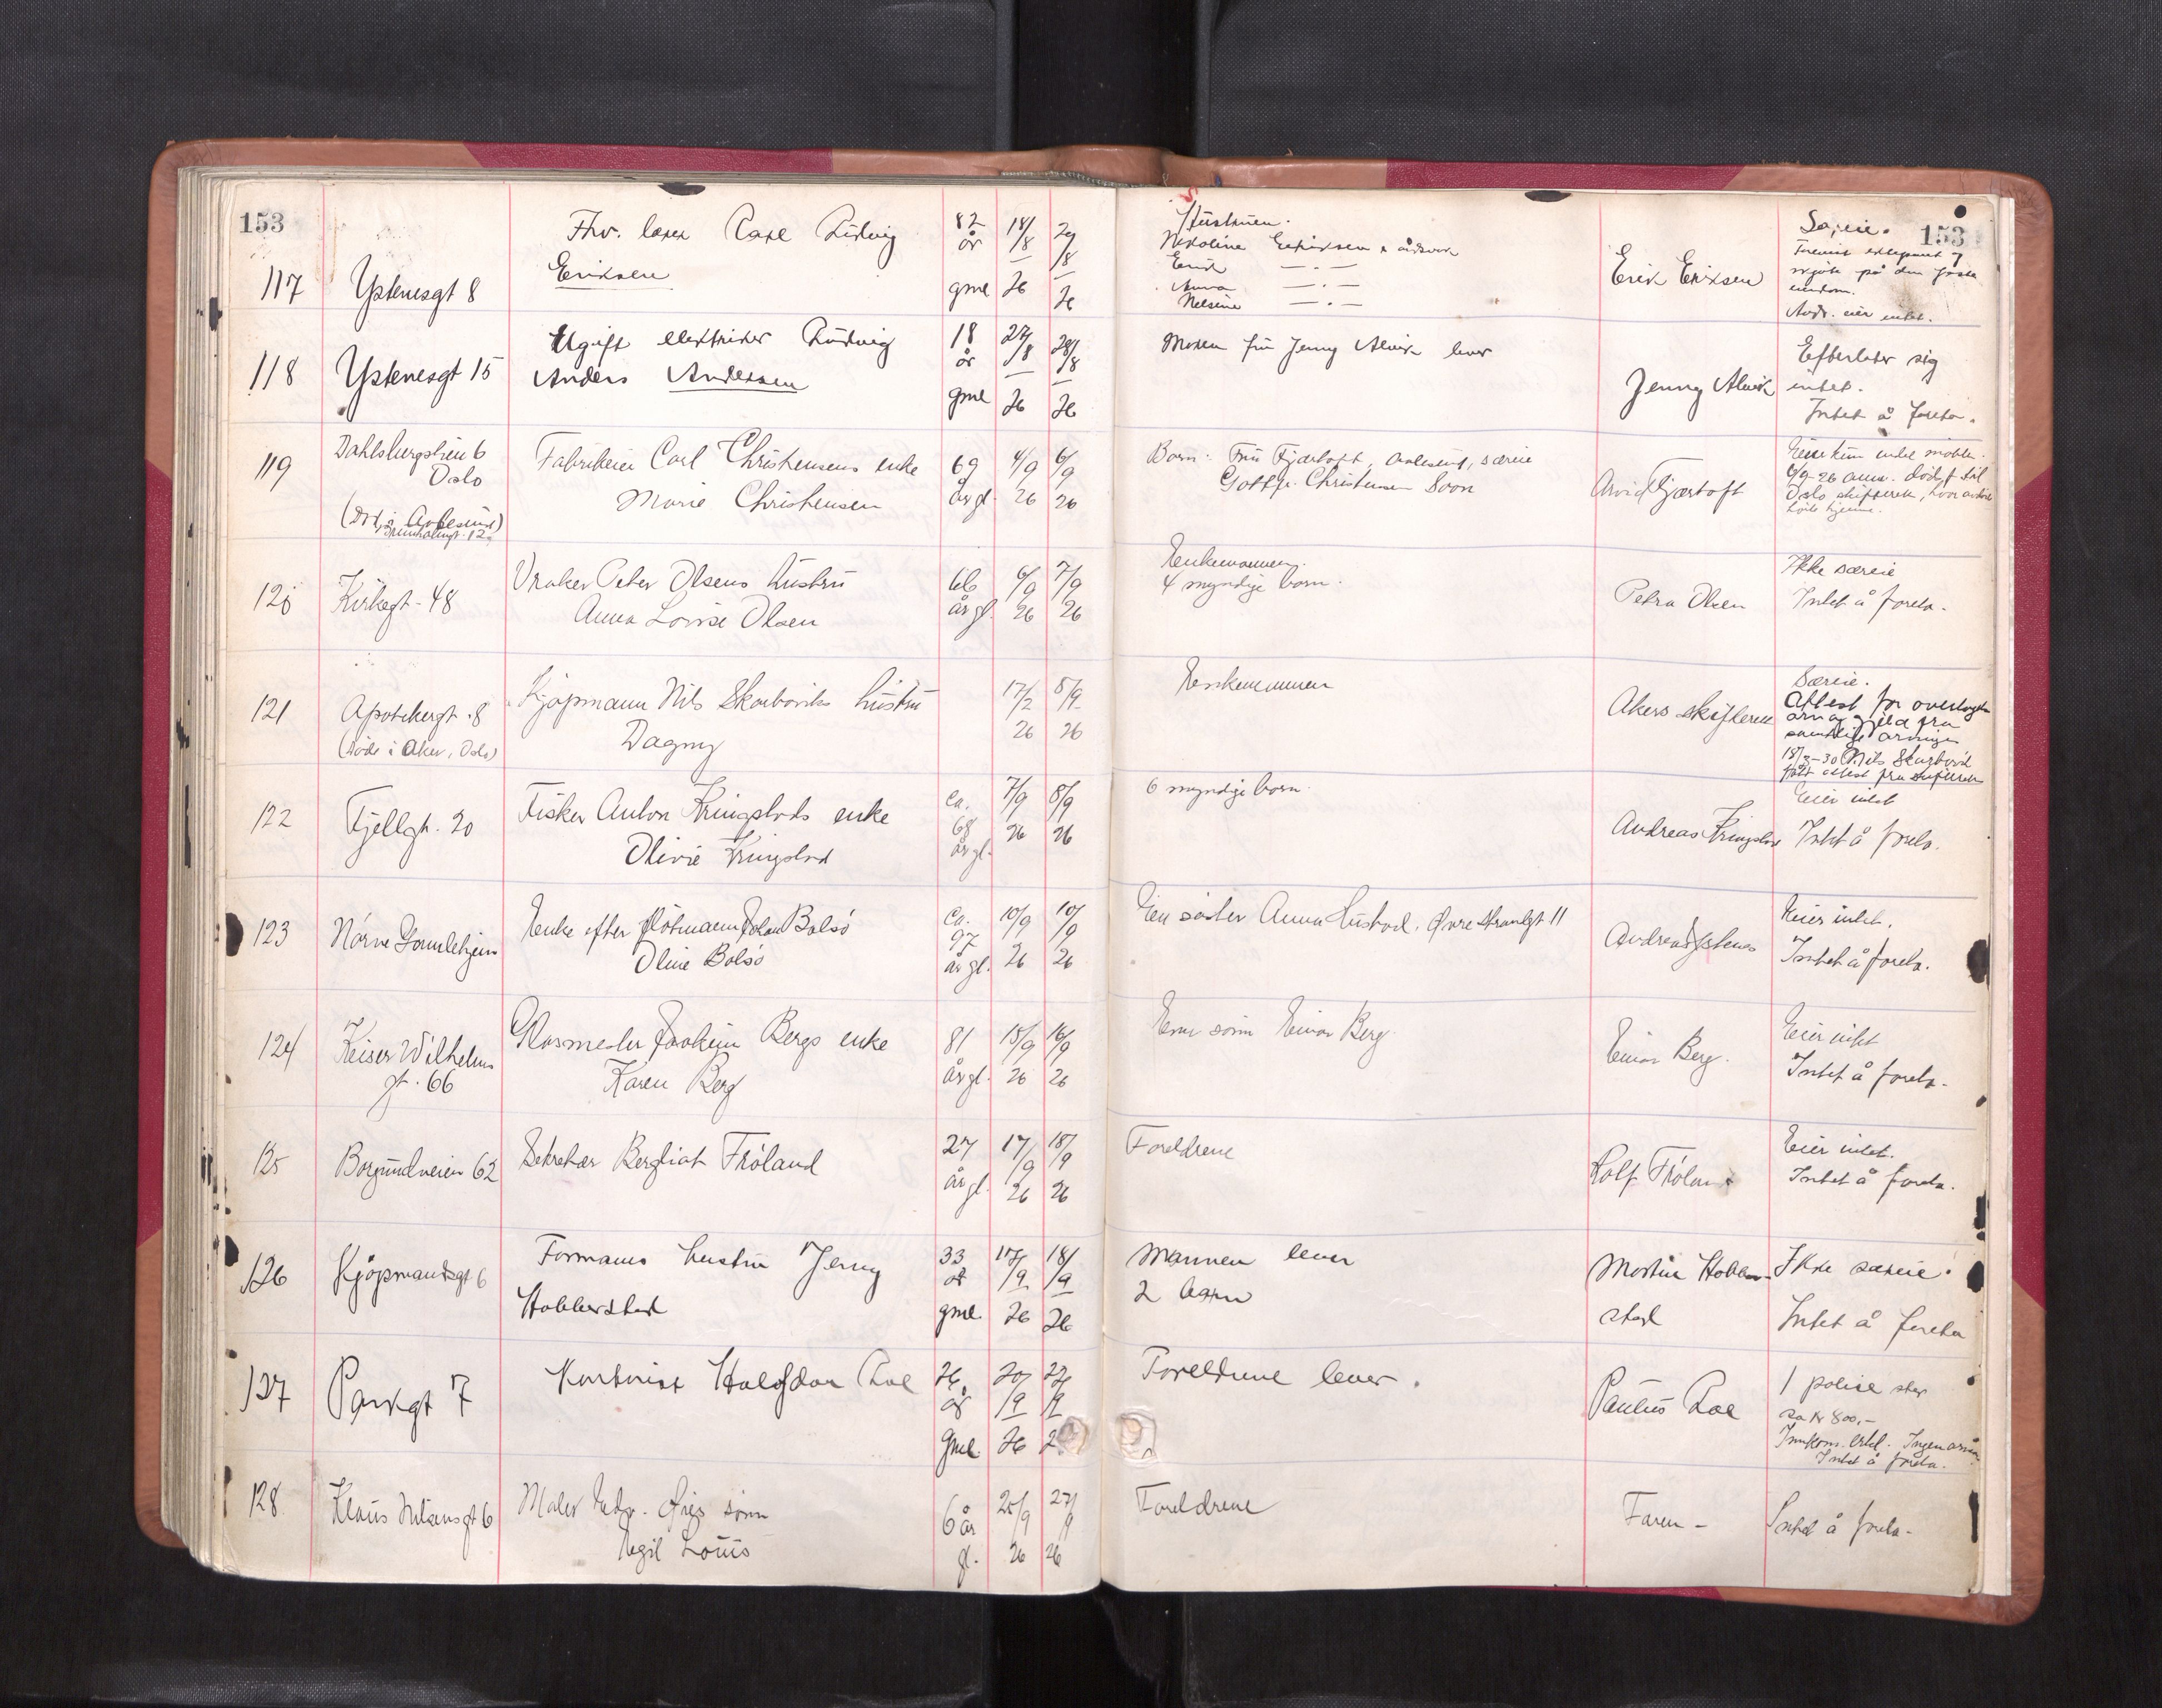 153
117
Ystenesgt 8
Fhv. lærer Carl Ludvig
Eriksen
82
år
gml
18/8
26
20/8
26
Hustruen.
Nikoline Eriksen
Erik — . —
Anna — . —
Nelsine — . —
Erik Eriksen
Særeie. 153
skjöte på den faste
eiendom.
Avdr. eier intet.
118
Ystenesgt 15
Ugift elektriker Ludvig
Anders Andersen
18
år
gml
27/8
26
28/8
26
Moren fru Jenny Alvik lever
Jenny Alvik
Efterlater sig
intet.
Intet å foreta.
119
Dahlsbergstien 6
Oslo
Fabrikeier Carl Christensens enke
Marie Christensen
69
år gl.
4/9
26
6/9
26
Barn: Fru Fjærtoft, Aalesund, særeie
Gottfr. Christensen Soon
Arvid Fjærtoft
Eiet kun endel möbler.
6/9-26 anm. dödsf. til
Oslo skifterett, hvor avdöde
hörte hjemme.
120
Kirkegt. 48
Vraker Peter Olsens hustru
Anna Lovise Olsen
66
år gl.
6/9
26
7/9
26
Enkemannen.
4 myndige barn.
Petra Olsen
Ikke særeie
Intet å foreta.
121
Apotekergt. 8
(Döde i Aker, Oslo)
Kjöpmann Nils Skarböviks hustru
Dagny
17/2
26
8/9
26
Enkemannen
Akers skifterett
Særeie.
Attest for overtagelse
arv og gjeld fra
samtlige arvinger
18/3-30 Nils Skarbövik
fått attest fra skifteretten
122
Fjellgt. 20
Fisker Anton Kringstads enke
Olivie Kringstad
ca.
68
år gl.
7/9
26
8/9
26
6 myndige barn.
Andreas Kringstad
Eier intet
Intet å foreta.
123
Nörve Gamlehjem
Enke efter flötmann Johan Bolsö
Oline Bolsö
ca.
97
år gl.
10/9
26
10/9
26
En söster Anna Hustad. Övre Strandgt 11
Andreas Ystenes
Eier intet.
Intet å foreta.
124
Keiser Wilhelms
gt. 66
Glasmester Joakim Bergs enke
Karen Berg
81
år gl.
15/9
26
16/9
26
En sönn Einar Berg.
Einar Berg.
Eier intet
Intet å foreta.
125
Borgundveien 62
Sekretær Bergliot Fröland
27
år gl.
17/9
26
18/9
26
Foreldrene
Rolf Fröland
Eier intet.
Intet å foreta.
126
Kjöpmandsgt 6
Formanns hustru Jenny
Hobberstad
33
år
gml.
17/9
26
18/9
26
Mannen lever
2 barn
Martin Hobber-
stad
Ikke særeie.
Intet å foreta
127
Parkgt 7
Kontorist Halfdan Roe
26
år
gml.
20/9
26
22/9
Foreldrene lever.
Paulus Roe
1 polise stor
ca Kr 800,-
Intet å foreta.
128.
Klaus Nilsensgt 6
Maler Edv. Giejs sönn
Egil Louis
6 år
gl.
25/9
26
27/9
26
Foreldrene
Faren -
Intet å foreta.